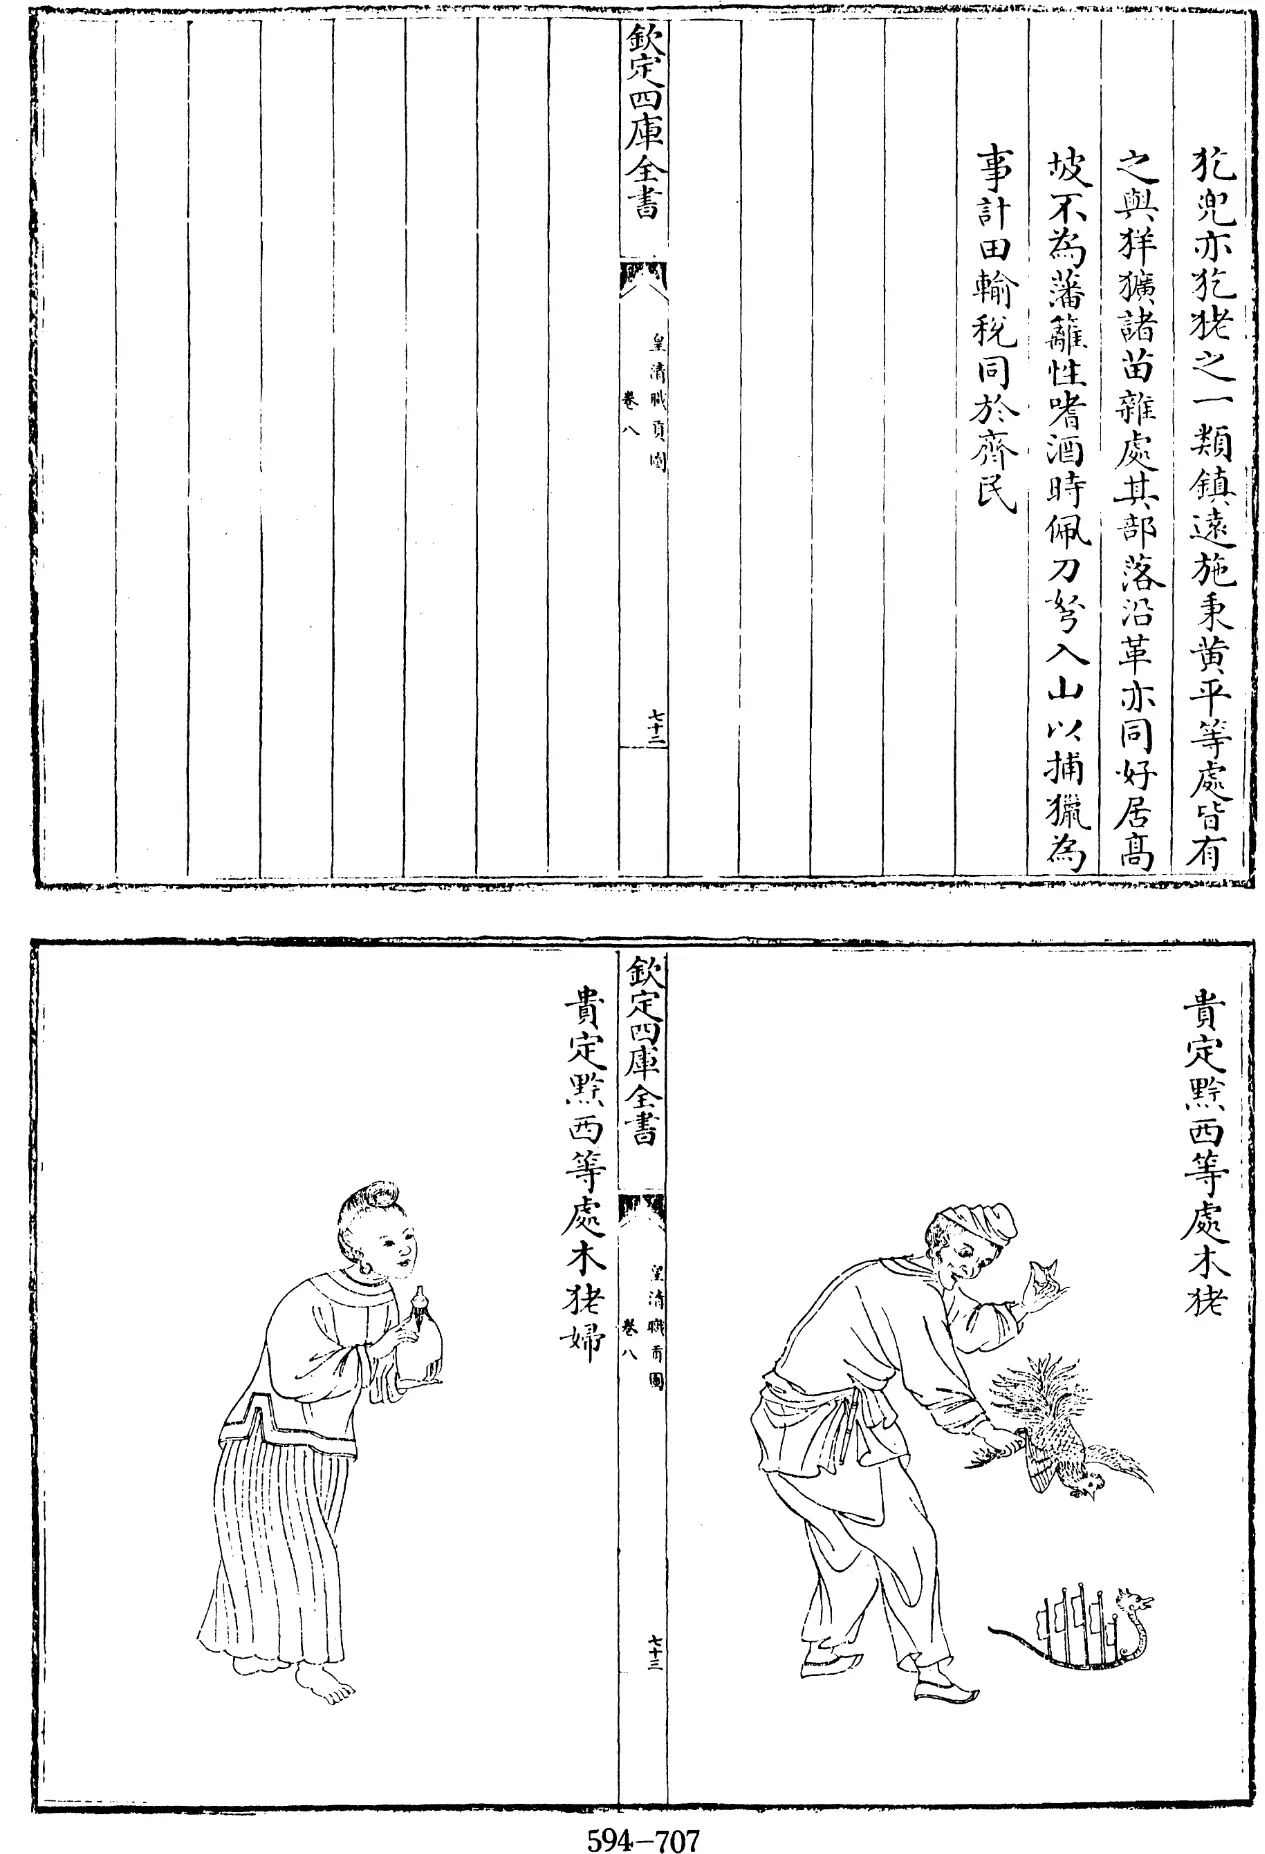 犵兜亦犵狫之一類鎮遠施秉黄平等處皆有
之與𤝞獷諸苗雜處其部落沿革亦同好居髙
坡不為藩籬性嗜酒時佩刀弩入山以捕獵為
事計田輸税同於齊民
欽定四庫全書
皇清職貢圖
卷八
七十二
貴定黔西等處木狫
欽定四庫全書
皇清職貢圖
卷八
七十三
貴定黔西等處木狫婦
594-707